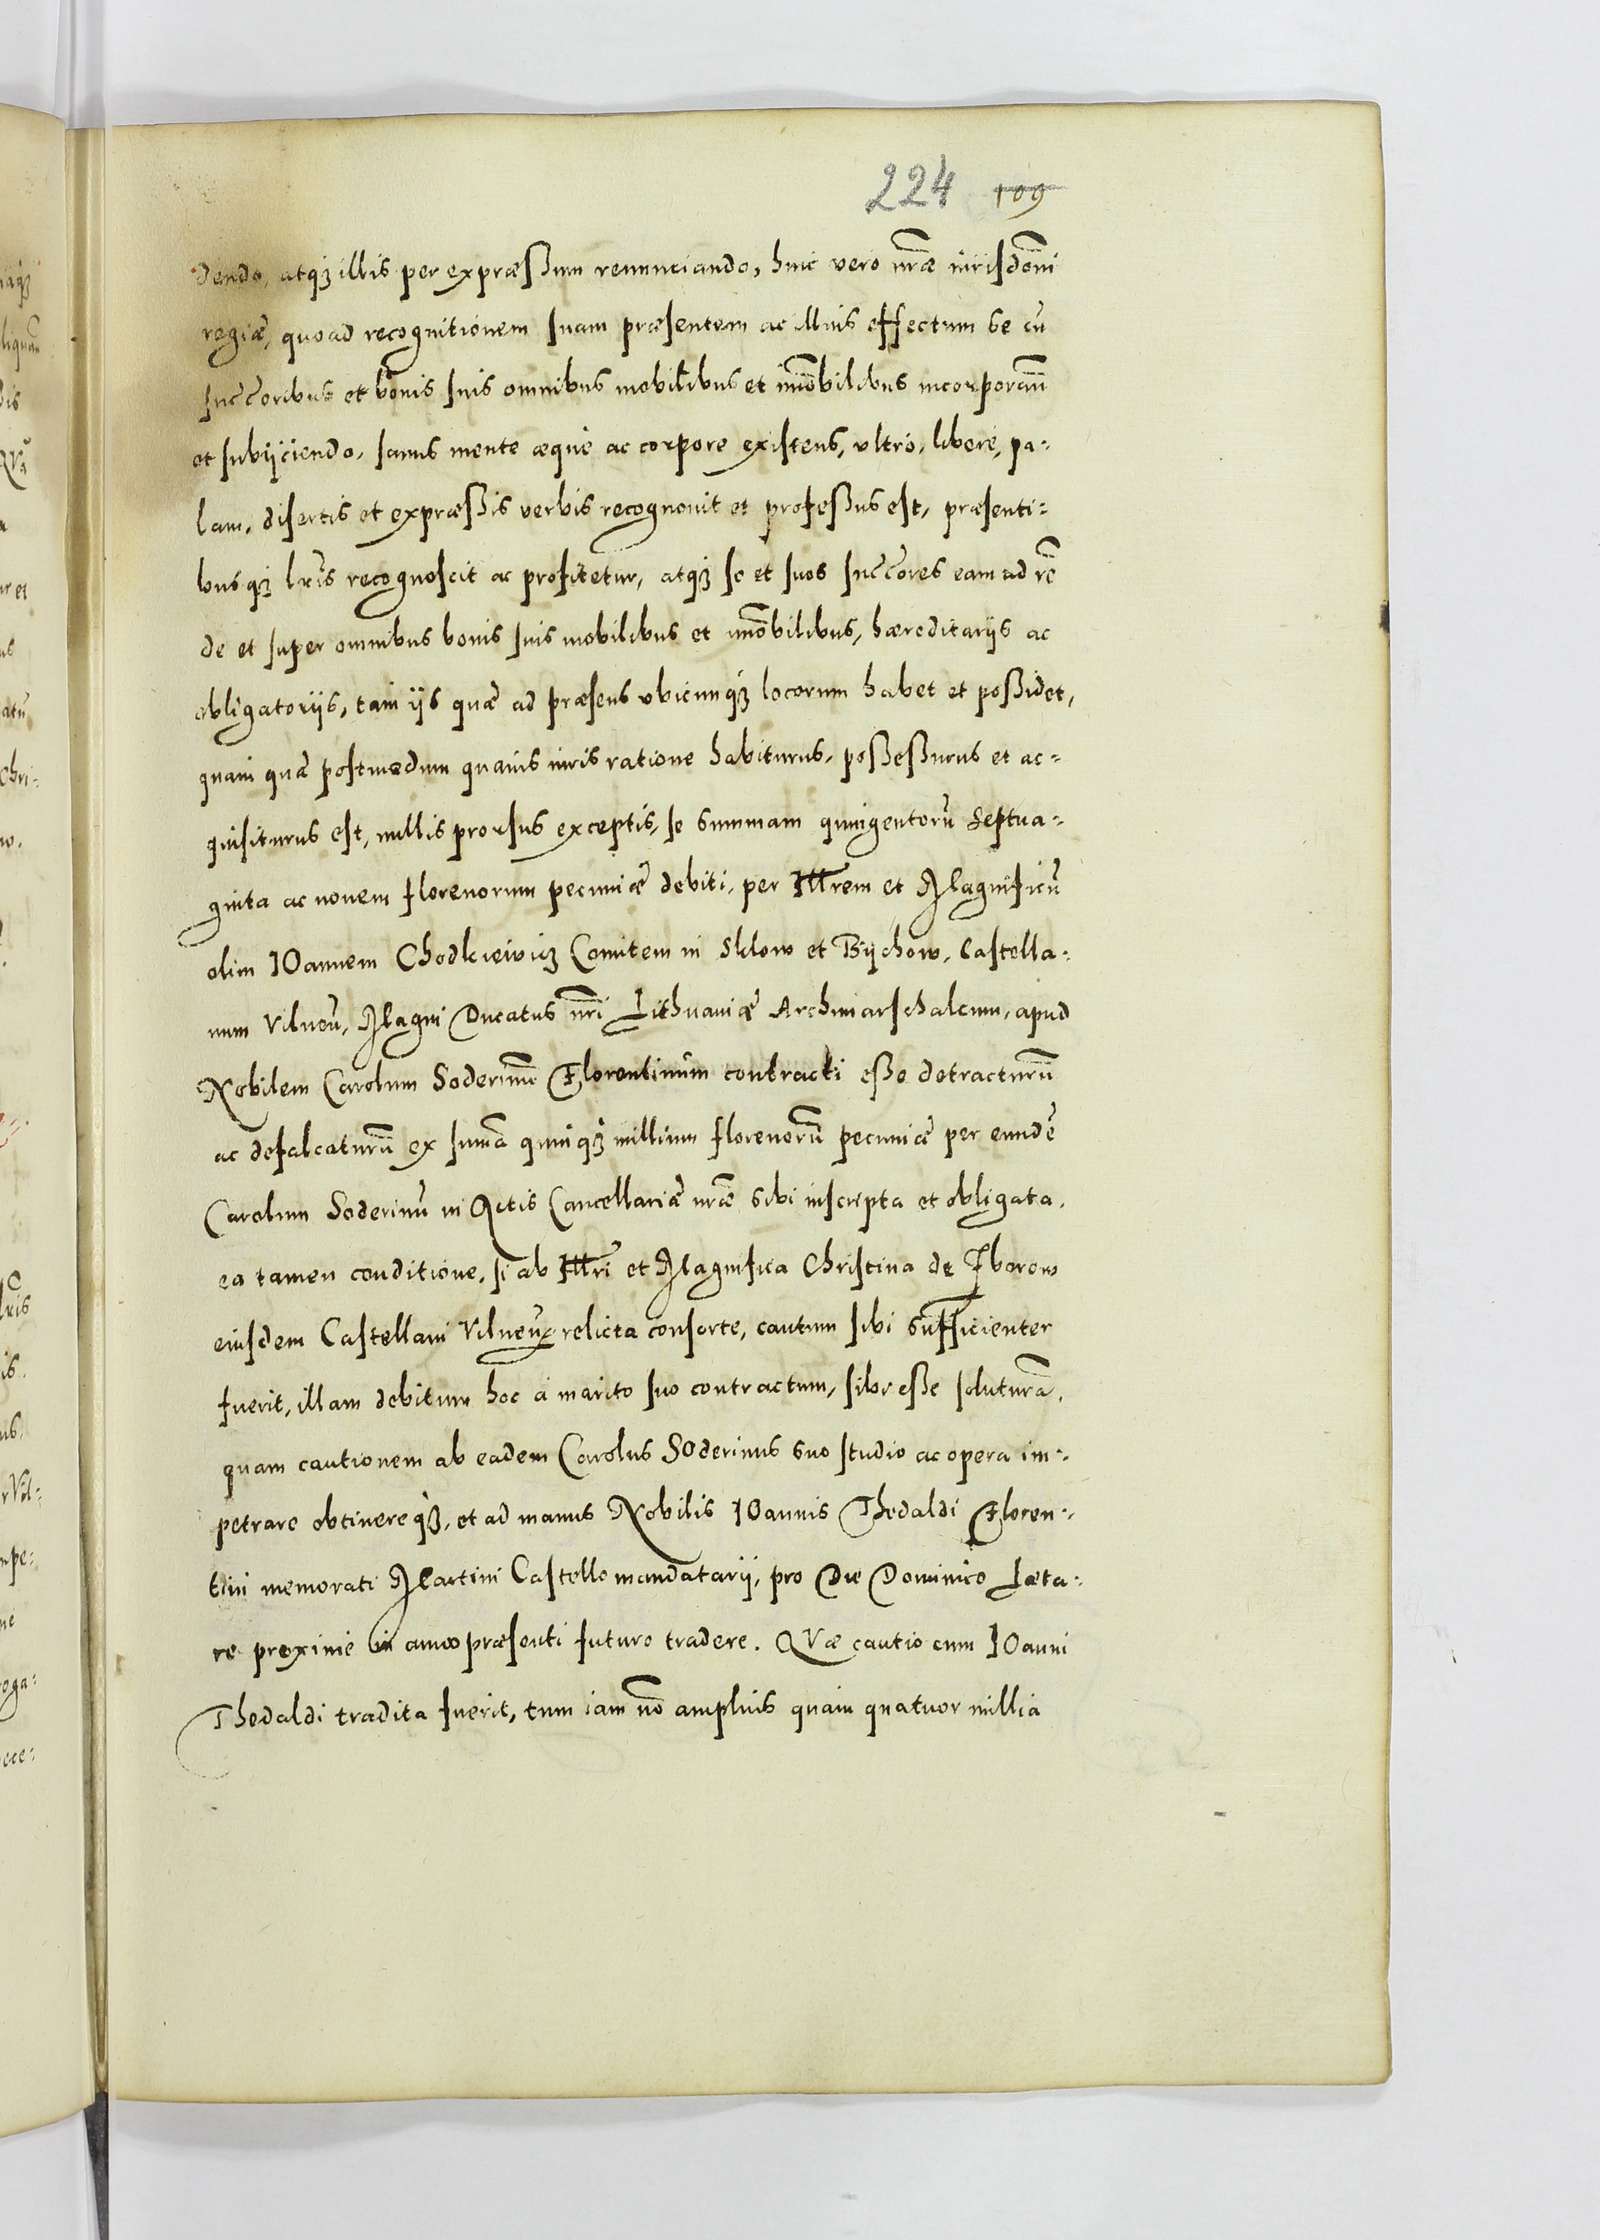 224 109
dendo, atq₃ illis per expræssum renunciando, huic vero nr̃æ iurisdõni
regiæ, quoad recognitionem suam præsentem ac illius effectum se cũ
succ̃oribus et bonis suis omnibus mobilibus et im̃obilibus incorporañ
et subijciendo, sanus mente æque ac corpore existens, vltró, liberé, pa-
lam, disertis et expræssis verbis recognouit et professus est, præsenti-
busq₃ lr̃is recognoscit ac profitetur, atq₃ se et suos succ̃ores eam ad rẽ
de et super omnibus bonis suis mobilibus et im̃obilibus, hæreditarijs ac
obligatorijs, tam ijs quæ ad præsens vbicunq₃ locorum habet et possidet,
quam quæ postmodum quauis iuris ratione habiturus, possessurus et ac-
quisiturus est, nullis prorsus exceptis, se summam quingentorũ septua-
ginta ac nouem florenorum pecuniæ debiti, per Illrem et Magnificũ
olim IOannem Chodkieivicz Comitem in Sklow et Bijchow, Castella-
num Vilneñ, Magni Ducatus nr̃i Lithuaniæ Archimarschalcum, apud
Nobilem Carolum Soderinum Florentinum contracti esse detracturũ
ac defalcaturũ ex sum̃a quinq₃ millium florenorũ pecuniæ per eundẽ
Carolum Soderinũ in Actis Cancellariæ nr̃æ sibi inscripta et obligata,
ea tamen conditione, si ab Illri et Magnifica Christina de Zborow
eiusdem Castellani Vilneñ relicta consorte, cautum sibi sufficienter
fuerit, illam debitum hoc á marito suo contractum, sibi esse soluturã,
quam cautionem ab eadem Carolus SOderinus suo studio ac opera im-
petrare obtinereq₃, et ad manus Nobilis IOannis Thedaldi Floren-
tini memorati Martini Castello mandatarij, pro Die Dominico Læta-
re proximé in anno præsenti futuro tradere. QVæ cautio cum IOanni
Thedaldi tradita fuerit, tum iam nõ amplius quam quatuor millia